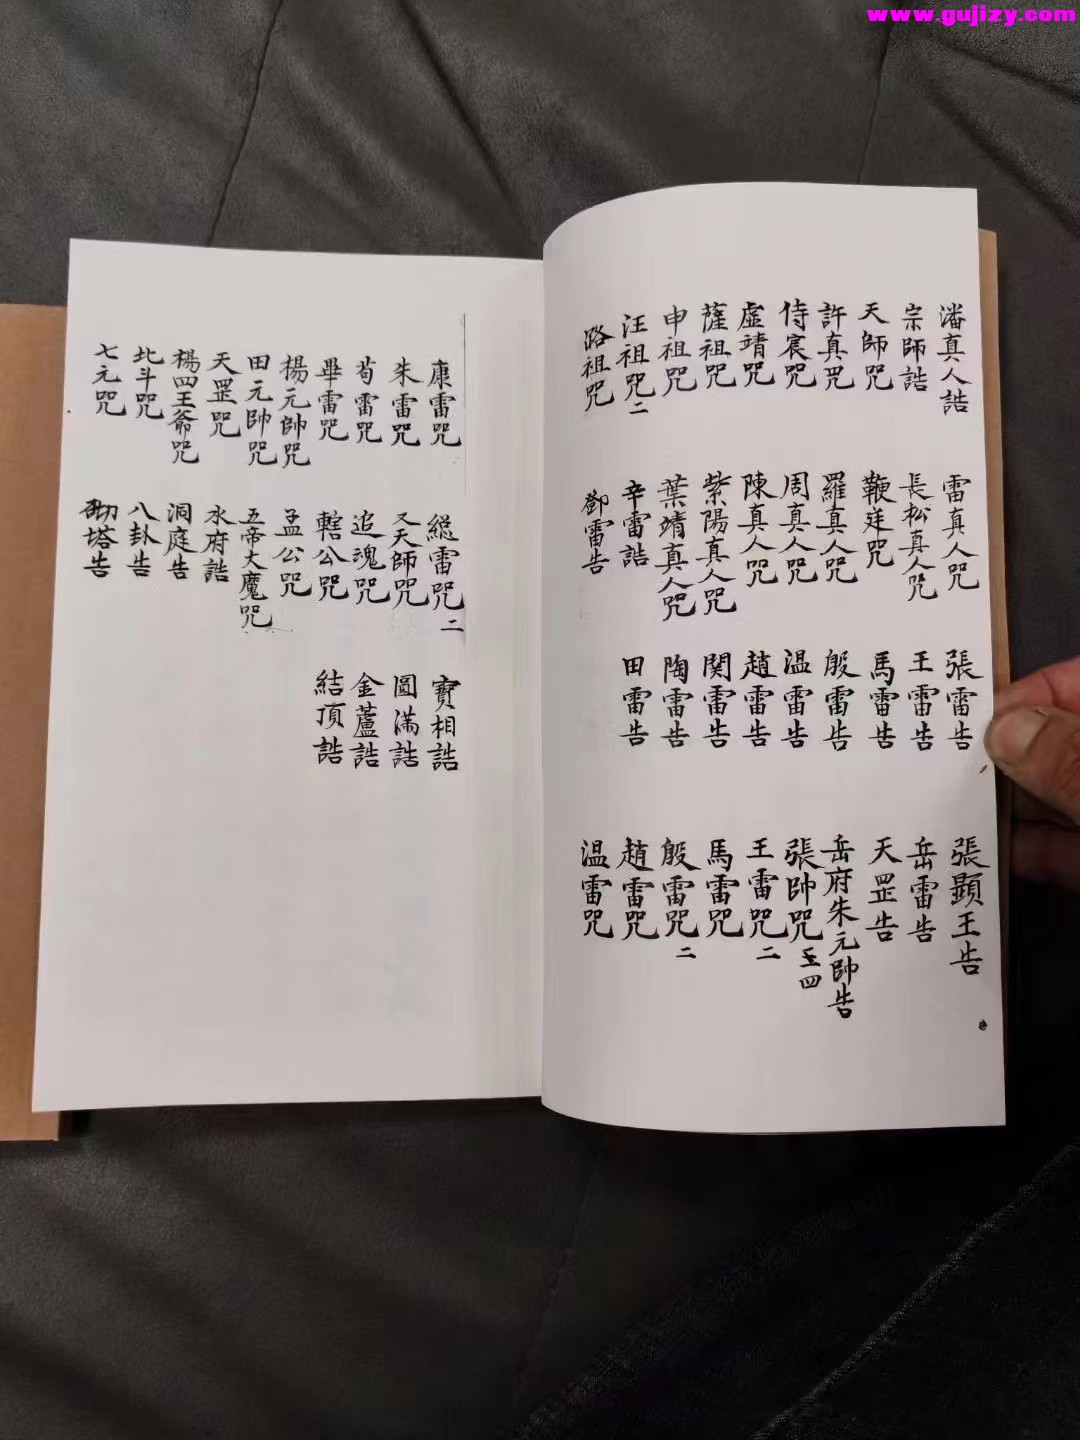 www.gujizy.com
潘真人誥
宗師誥
天師咒
許真咒
侍宸咒
虛靖咒
薩祖咒
申祖咒
汪祖咒二
路祖咒
雷真人咒
長松真人咒
鞭廷咒
羅真人咒
周真人咒
陳真人咒
紫陽真人咒
葉靖真人咒
辛雷誥
鄧雷告
張雷告
王雷告
馬雷告
殷雷告
温雷告
趙雷告
関雷告
陶雷告
田雷告
張顯王告
岳雷告
天罡告
岳府朱元帥告
張帥咒
四
王雷咒二
馬雷咒
殷雷咒二
趙雷咒
温雷咒
康雷咒
朱雷咒
茍雷咒
畢雷咒
楊元帥咒
田元帥咒
天罡咒
楊四王爺咒
北斗咒
七元咒
総雷咒二
又天師咒
追魂咒
轄公咒
孟公咒
五帝大魔咒
水府誥
洞庭告
八卦告
砌塔告
寶相誥
圓滿誥
金蘆誥
結頂誥